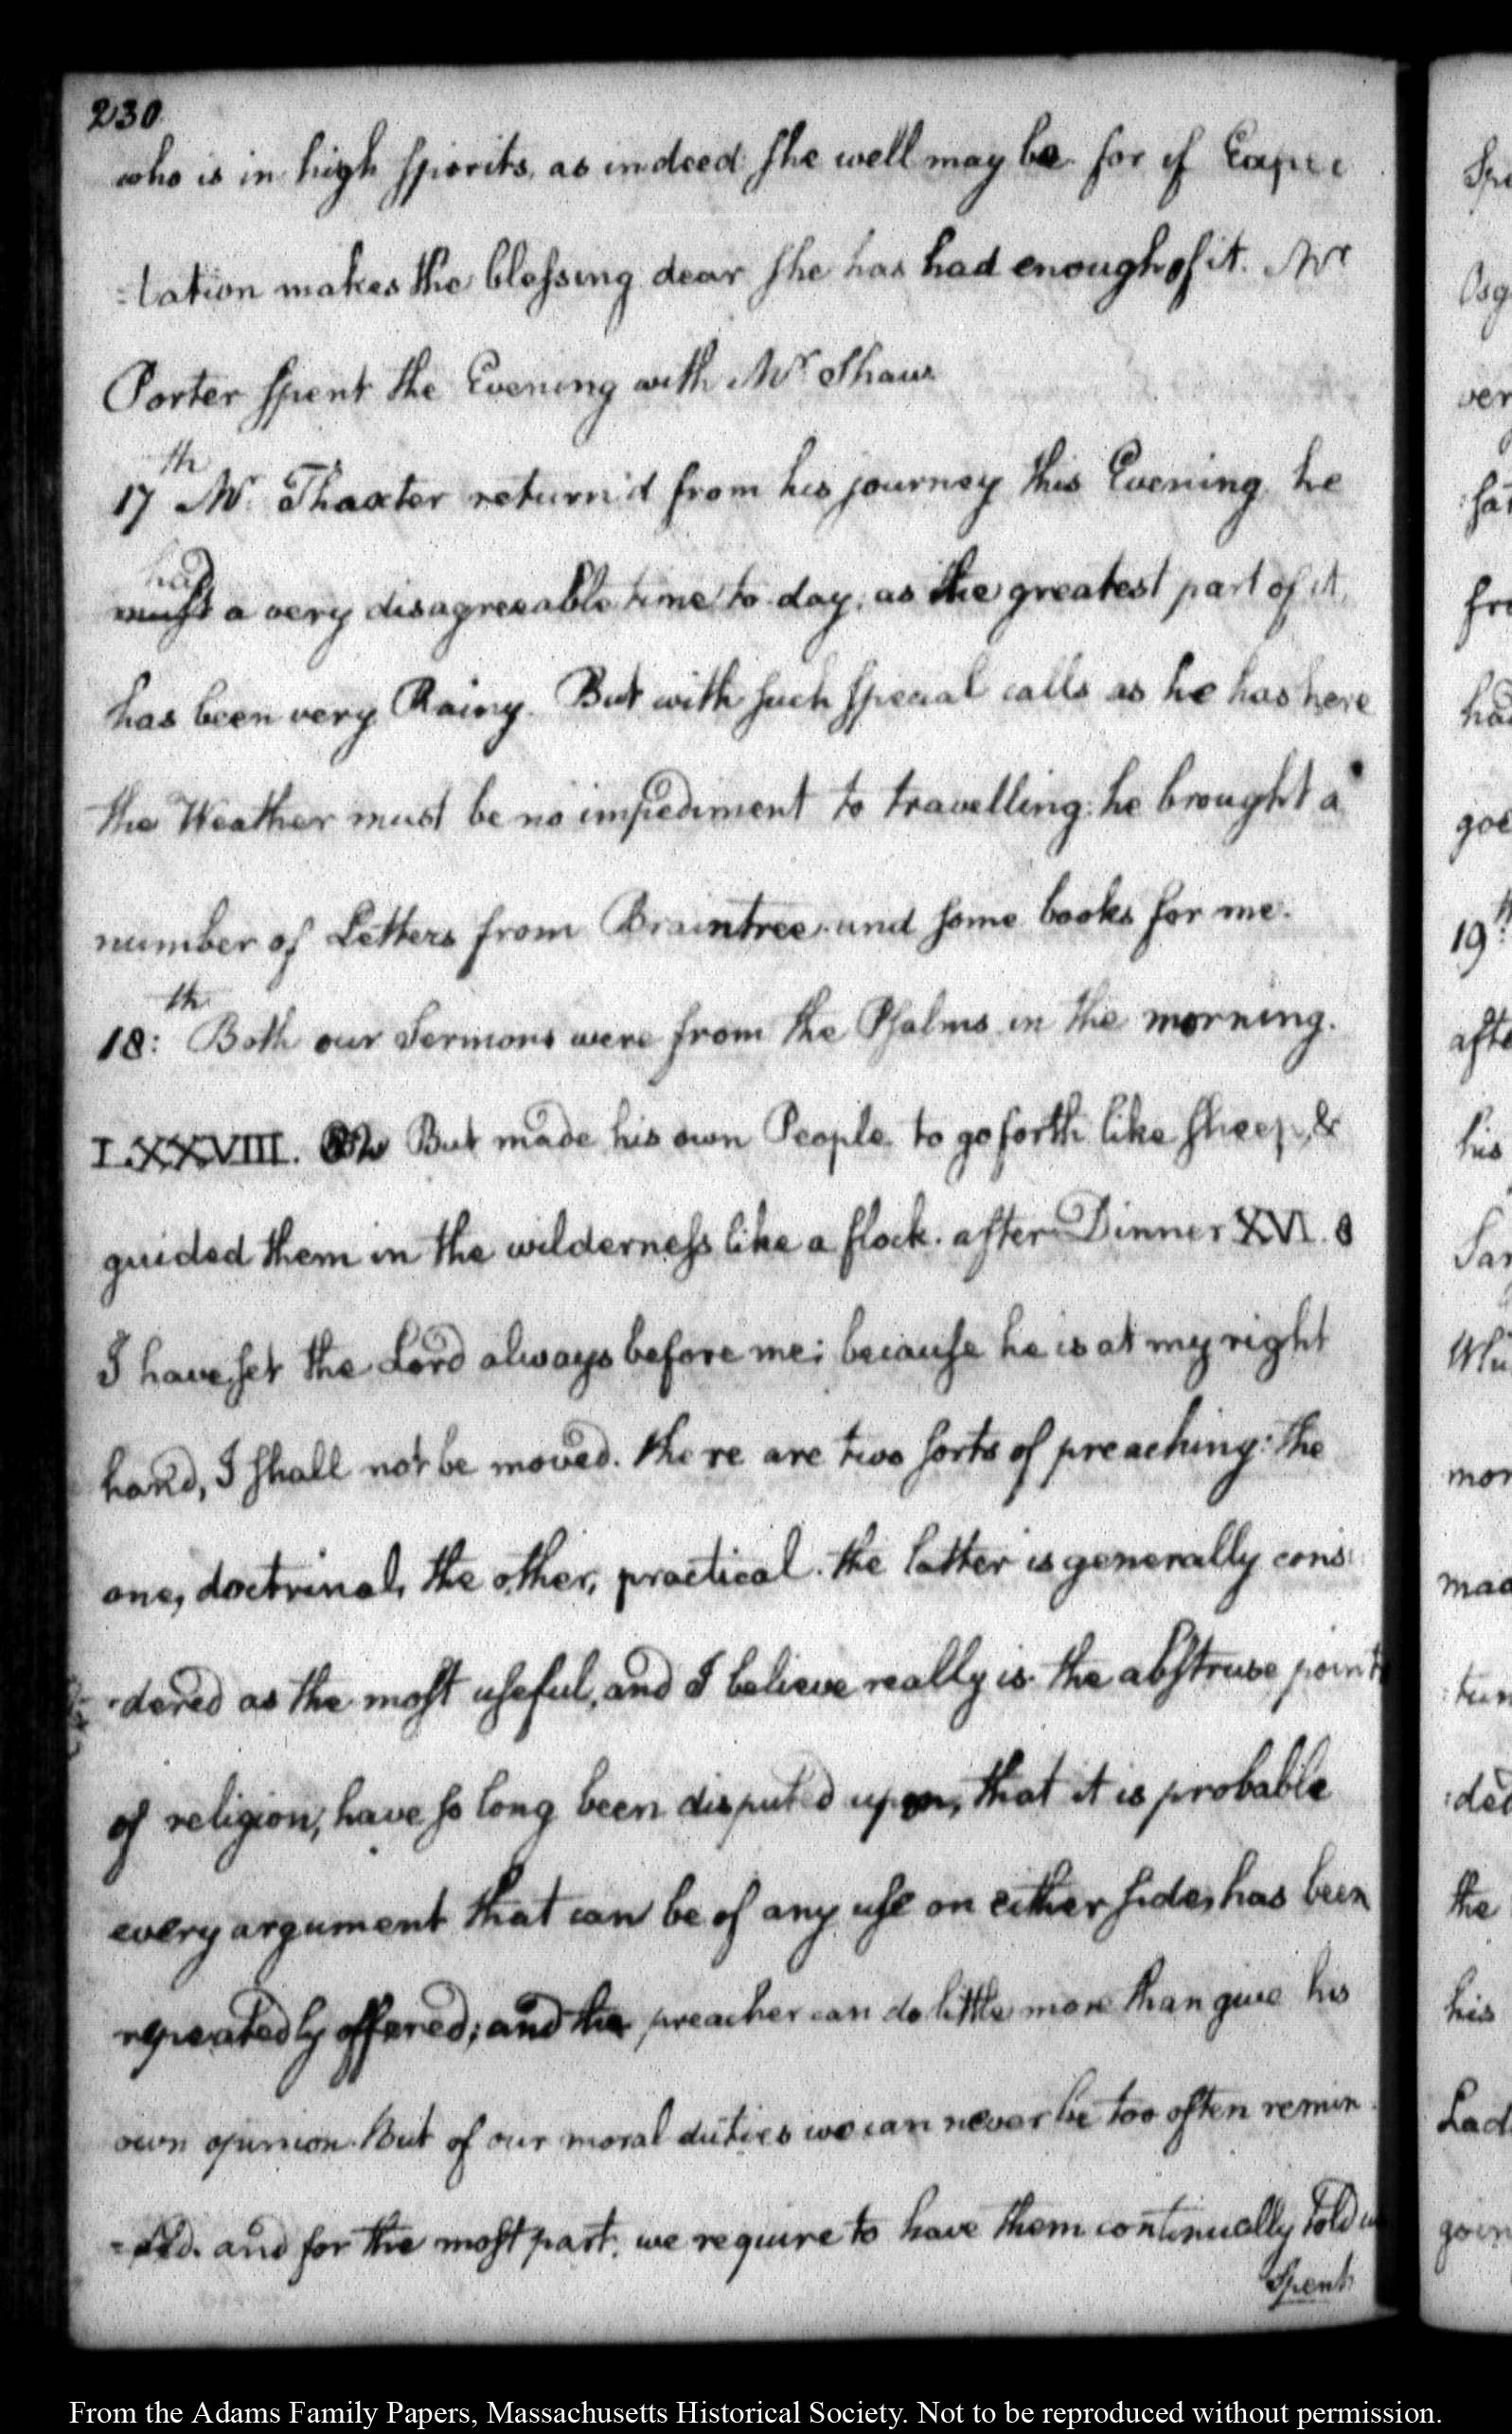 230
who is in high spirits, as indeed she well may be. for if Expec
=tation makes the blessing dear she has had enough of it. Mr
Porter spent the Evening with Mr Shaw.
17th Mr. Thaxter return'd from his journey this Evening, he
had
must a very disagreeable time to day, as the greatest part of it,
has been very Rainy. But with such special calls as he has here
the Weather must be no impediment to travelling: he brought a
number of Letters from Braintree and some books for me.
18:th Both our Sermons were from the Psalms in the morning.
LXXVIII. 52 But made his own People to go forth like sheep, &
guided them in the wilderness like a flock. after Dinner XVI. 8
I have set the Lord always before me; because he is at my right
hand, I shall not be moved. there are two sorts of preaching: the
one, doctrinal, the other, practical. the latter is generally consi
-dered as the most useful, and I believe really is. the abstruse points
of religion, have so long been disputed upon, that it is probable
every argument that can be of any use on either side, has been
repeatedly offered; and the preacher can do little more than give his
own opinion. But of our moral duties we can never be too often remin
=ded. and for the most part, we require to have them continually told us
Spent
Spe
Osg
ver
fat
fro
had
goe
19th
afte
his
Sar
Whi
mor
mad
:tun
:ded
the
his
Lad
goin
From the Adams Family Papers, Massachusetts Historical Society. Not to be reproduced without permission.